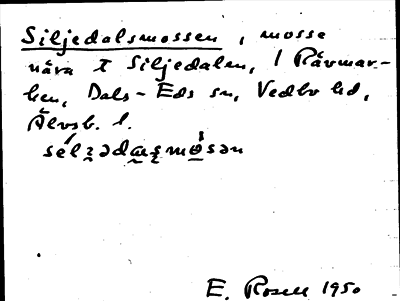 Siljedalsmossen, mosse
nära t Siljedalen, / Rävmar-
ken, Dals-Eds sn, Vedbo hd,
Älvsb. l.
E. Rosell 1950